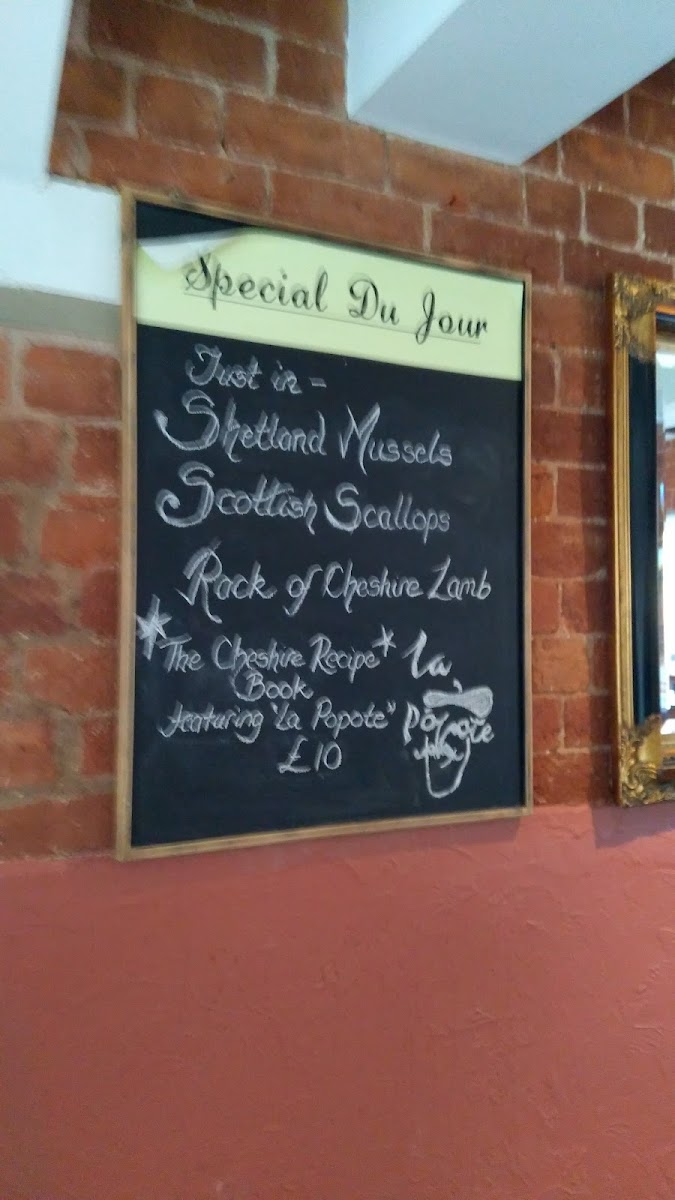 Special Du Jour
Just in -
Shetland Mussels
Scottish Scallops
Rack of Cheshire Lamb
*The Cheshire Recipe*
Book
featuring "La Popote"
£10
La
Popote